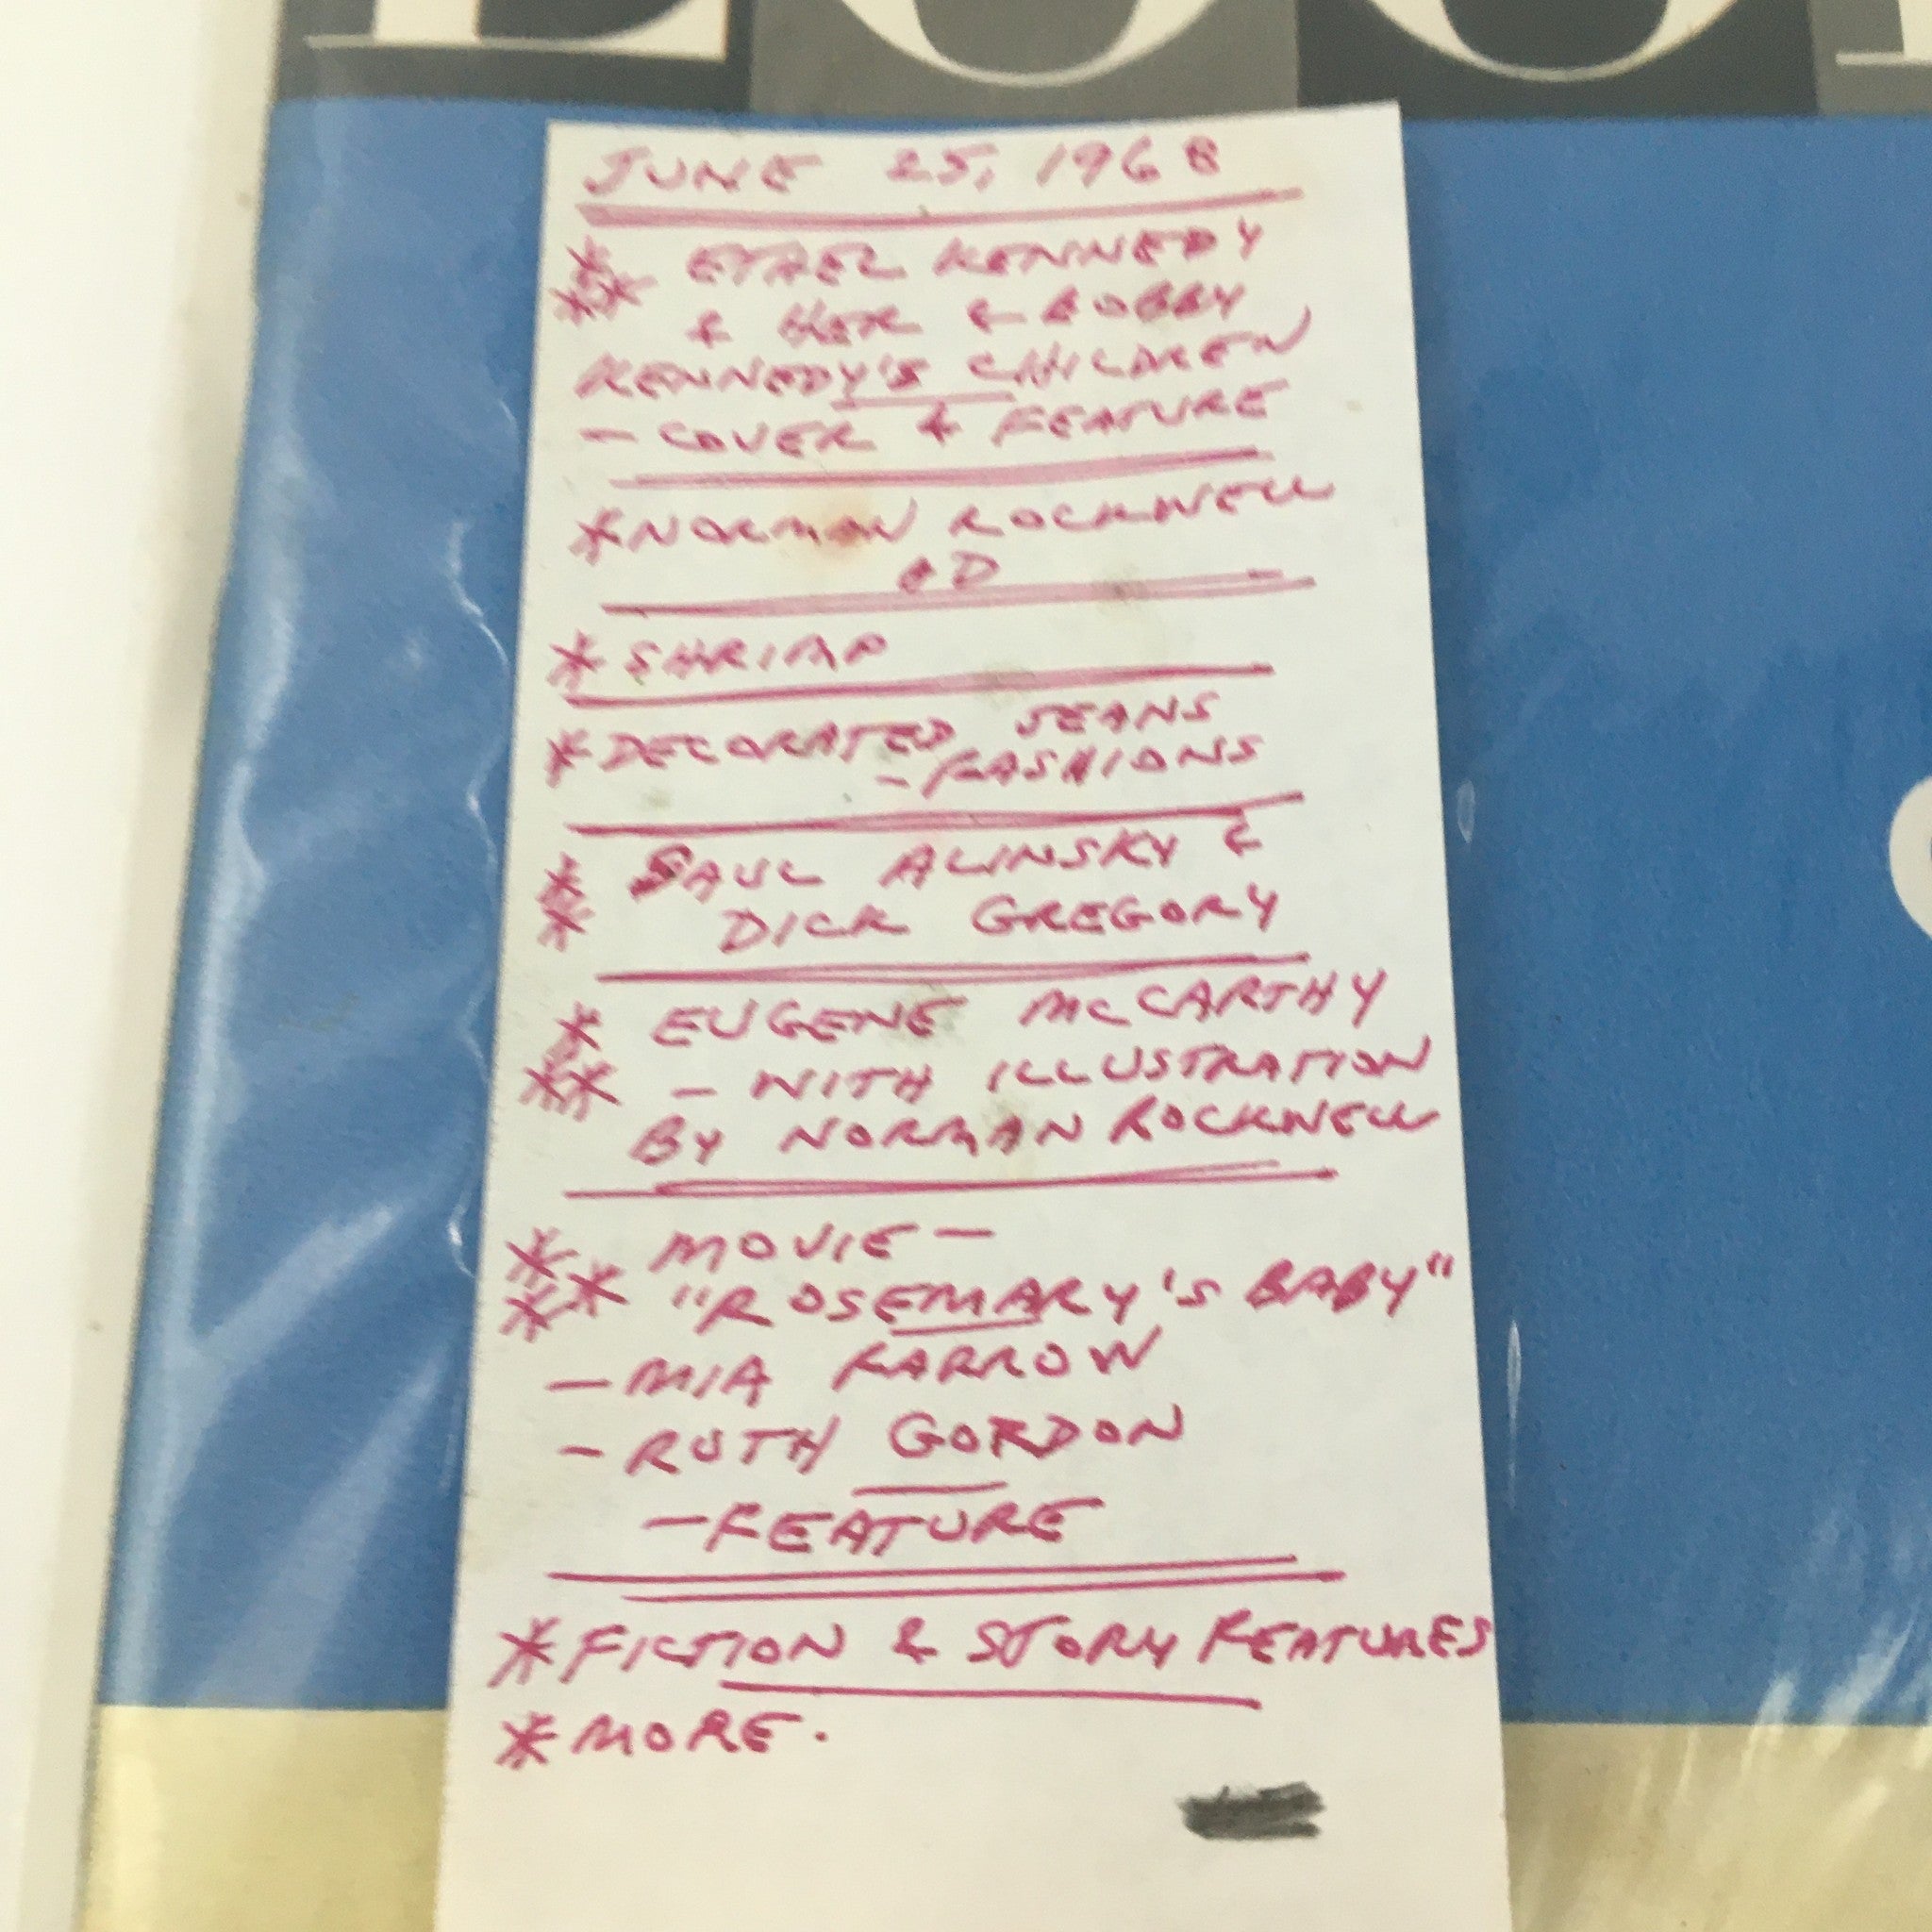 LOOK
JUNE 25, 1968
* ETHEL KENNEDY
** & HER & BOBBY
KENNEDY'S CHILDREN
- COVER & FEATURE
* NORMAN ROCKWELL
AD
* SHRIMP
* DECORATED JEANS
- FASHIONS
* SAUL ALINSKY &
* DICK GREGORY
* EUGENE McCARTHY
** - WITH ILLUSTRATION
BY NORMAN ROCKWELL
* MOVIE -
** "ROSEMARY'S BABY"
- MIA FARROW
- RUTH GORDON
- FEATURE
* FICTION & STORY FEATURES
* MORE.